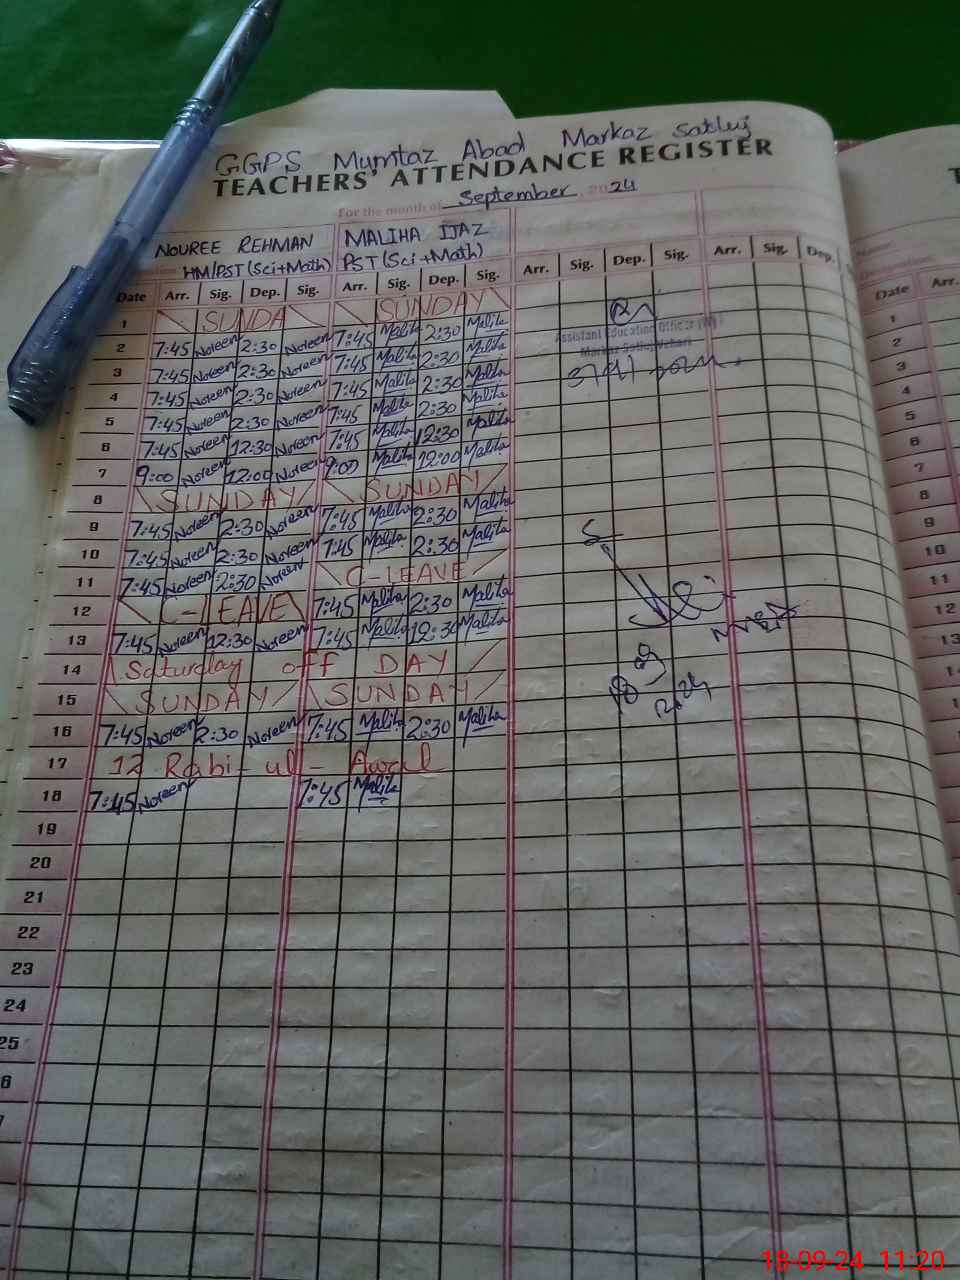 GGPS Mumtaz Abad Markaz Satluj
TEACHERS' ATTENDANCE REGISTER
For the month of September 2024
NOUREE REHMAN MALIHA IJAZ
HM/PST (Sci+Math) PST (Sci+Math)
Date Arr. Sig. Dep. Sig. Arr. Sig. Dep. Sig. Arr. Sig. Dep. Sig. Arr. Sig. Dep. Date Arr.
1 SUNDA SUNDAY 1
2 7:45 Noreen 2:30 Noreen 7:45 Maliha 2:30 Maliha Assistant Education Officer 2
3 7:45 Noreen 2:30 Noreen 7:45 Maliha 2:30 Maliha 3
4 7:45 Noreen 2:30 Noreen 7:45 Maliha 2:30 Maliha 4
5 7:45 Noreen 2:30 Noreen 7:45 Maliha 2:30 Maliha 5
6 7:45 Noreen 12:30 Noreen 7:45 Maliha 12:30 Maliha 6
7 9:00 Noreen 12:00 Noreen 9:00 Maliha 12:00 Maliha 7
8 SUNDAY SUNDAY 8
9 7:45 Noreen 2:30 Noreen 7:45 Maliha 2:30 Maliha 9
10 7:45 Noreen 2:30 Noreen 7:45 Maliha 2:30 Maliha 10
11 7:45 Noreen 2:30 Noreen C-LEAVE 11
12 C-LEAVE 7:45 Maliha 2:30 Maliha 12
13 7:45 Noreen 12:30 Noreen 7:45 Maliha 12:30 Maliha 13
14 Saturday off DAY 14
15 SUNDAY SUNDAY 15
16 7:45 Noreen 2:30 Noreen 7:45 Maliha 2:30 Maliha 16
17 12 Rabi-ul-Awal 17
18 7:45 Noreen 7:45 Maliha 18
19 19
20 20
21 21
22 22
23 23
24 24
25 25
18-09-24 11:20